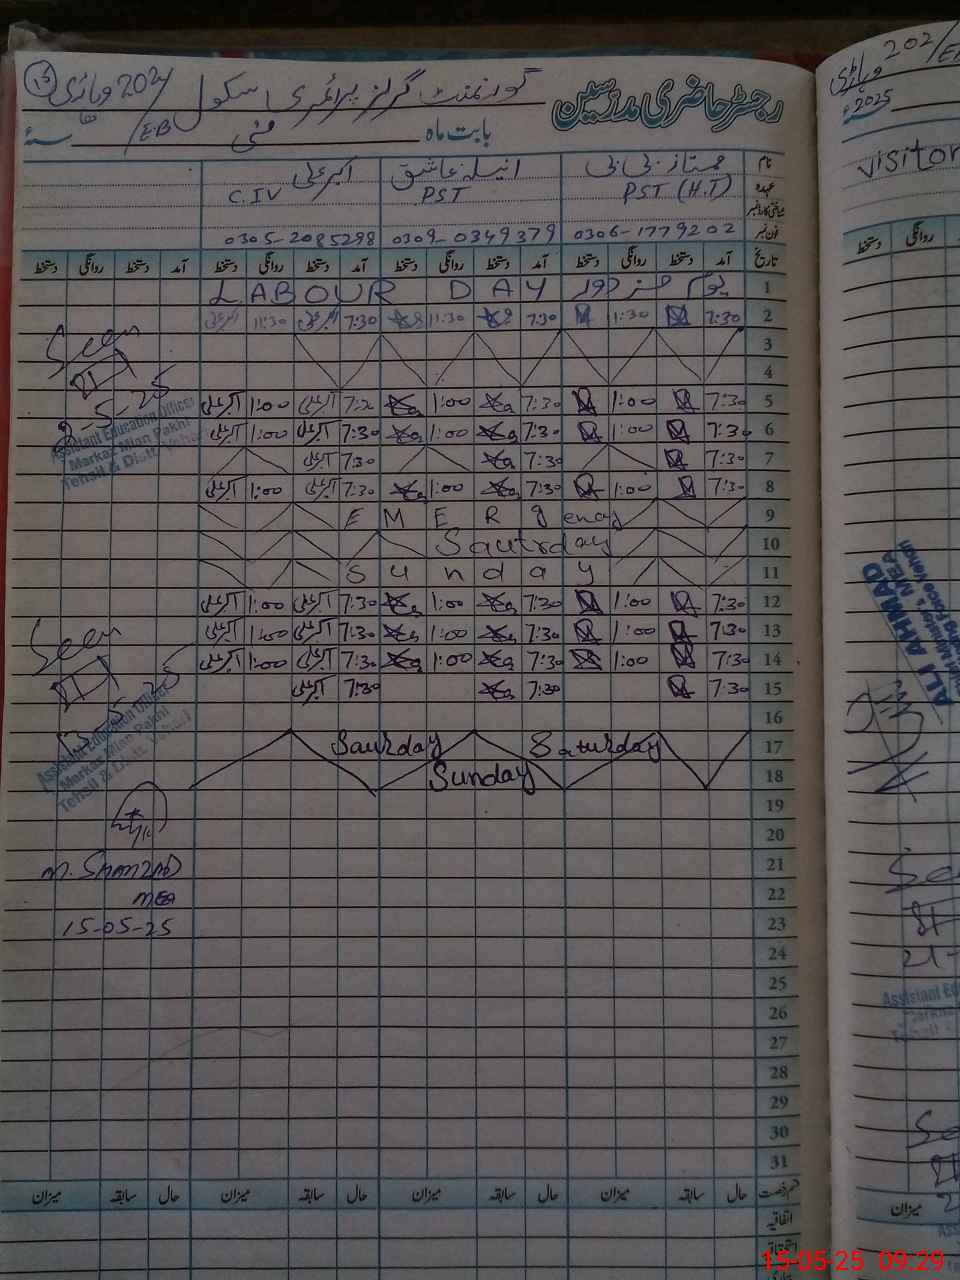 15 گورنمنٹ گرلز پرائمری اسکول 202/EB وہاڑی
رجسٹر حاضری مدرسین
بابت ماہ مئی سنۂ
نام ممتاز بی بی انیلہ عاشق اکبر علی
عہدہ PST (H.T) PST C.IV
شناختی کارڈ نمبر
فون نمبر 0306-1779202 0309-0349379 0305-2085298
تاریخ آمد دستخط روانگی دستخط آمد دستخط روانگی دستخط آمد دستخط روانگی دستخط آمد دستخط روانگی دستخط
1 یوم مزدور LABOUR DAY
2 7:30 11:30 7:30 11:30 7:30 اکبر علی 11:30 اکبر علی
3
4
5 7:30 1:00 7:30 1:00 اکبر علی 1:00 اکبر علی
6 7:30 1:00 7:30 1:00 7:30 اکبر علی 1:00 اکبر علی
7 7:30 7:30 7:30 اکبر علی
8 7:30 1:00 7:30 1:00 7:30 اکبر علی 1:00 اکبر علی
9 EMERgency
10 Sautrday
11 Sunday
12 7:30 1:00 7:30 1:00 7:30 اکبر علی 1:00 اکبر علی
13 7:30 1:00 7:30 1:00 7:30 اکبر علی 1:00 اکبر علی
14 7:30 1:00 7:30 1:00 7:30 اکبر علی 1:00 اکبر علی
15 7:30 7:30 7:30 اکبر علی
16
17 Saurday Saturday
18 Sunday
19
20
21
22
23
24
25
26
27
28
29
30
31
Seen
-5-25
Assistant Education Officer
Markaz Mian Pakhi
Tehsil & Distt. Vehari
Seen
Assistant Education Officer
Markaz Mian Pakhi
Tehsil & Distt. Vehari
M. Shahzad
MEA
15-05-25
قسم رخصت حال سابقہ میزان حال سابقہ میزان حال سابقہ میزان حال سابقہ میزان
اتفاقیہ
استحقاقیہ
202/E
وہاڑی
2025
visitor
روانگی دستخط
ALI AHMAD
MEA
21-
Assistant Ed
میزان
15-05-25 09:29